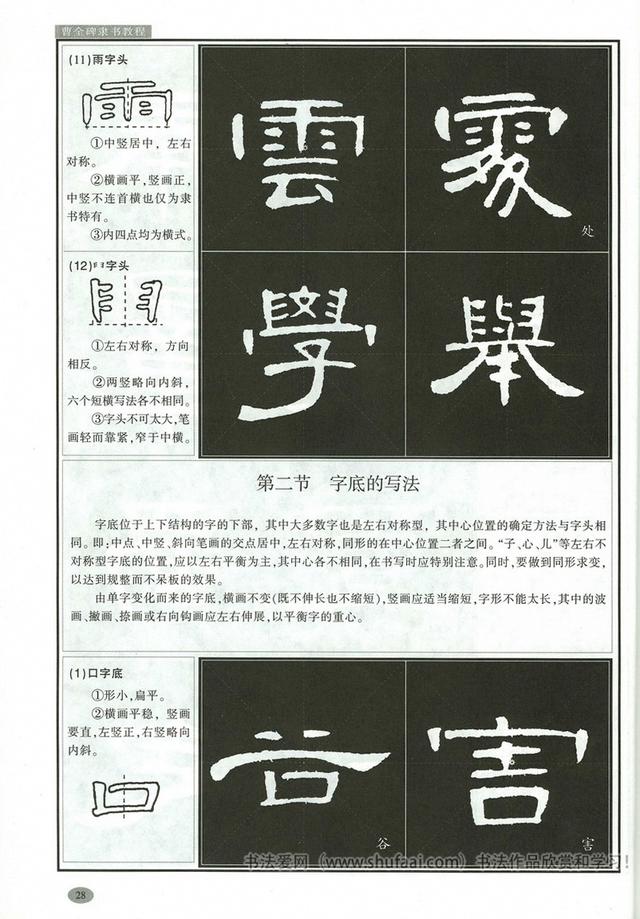 曹全碑隶书教程
(11)雨字头
①中竖居中，左右
对称。
②横画平，竖画正，
中竖不连首横也仅为隶
书特有。
③内四点均为横式。
雲
處
处
(12)字头
①左右对称，方向
相反。
②两竖略向内斜，
六个短横写法各不相同。
③字头不可太大，笔
画轻而靠紧，窄于中横。
學
舉
第二节 字底的写法
字底位于上下结构的字的下部，其中大多数字也是左右对称型，其中心位置的确定方法与字头相
同。即：中点、中竖、斜向笔画的交点居中，左右对称，同形的在中心位置二者之间。“子、心、儿”等左右不
对称型字底的位置，应以左右平衡为主，其中心各不相同，在书写时应特别注意。同时，要做到同形求变，
以达到规整而不呆板的效果。
由单字变化而来的字底，横画不变(既不伸长也不缩短)，竖画应适当缩短，字形不能太长，其中的波
画、撇画、捺画或右向钩画应左右伸展，以平衡字的重心。
(1)口字底
①形小，扁平。
②横画平稳，竖画
要直，左竖正，右竖略向
内斜。
谷
害
谷
害
书法爱网（www.shufaai.com）书法作品欣赏和学习！
28